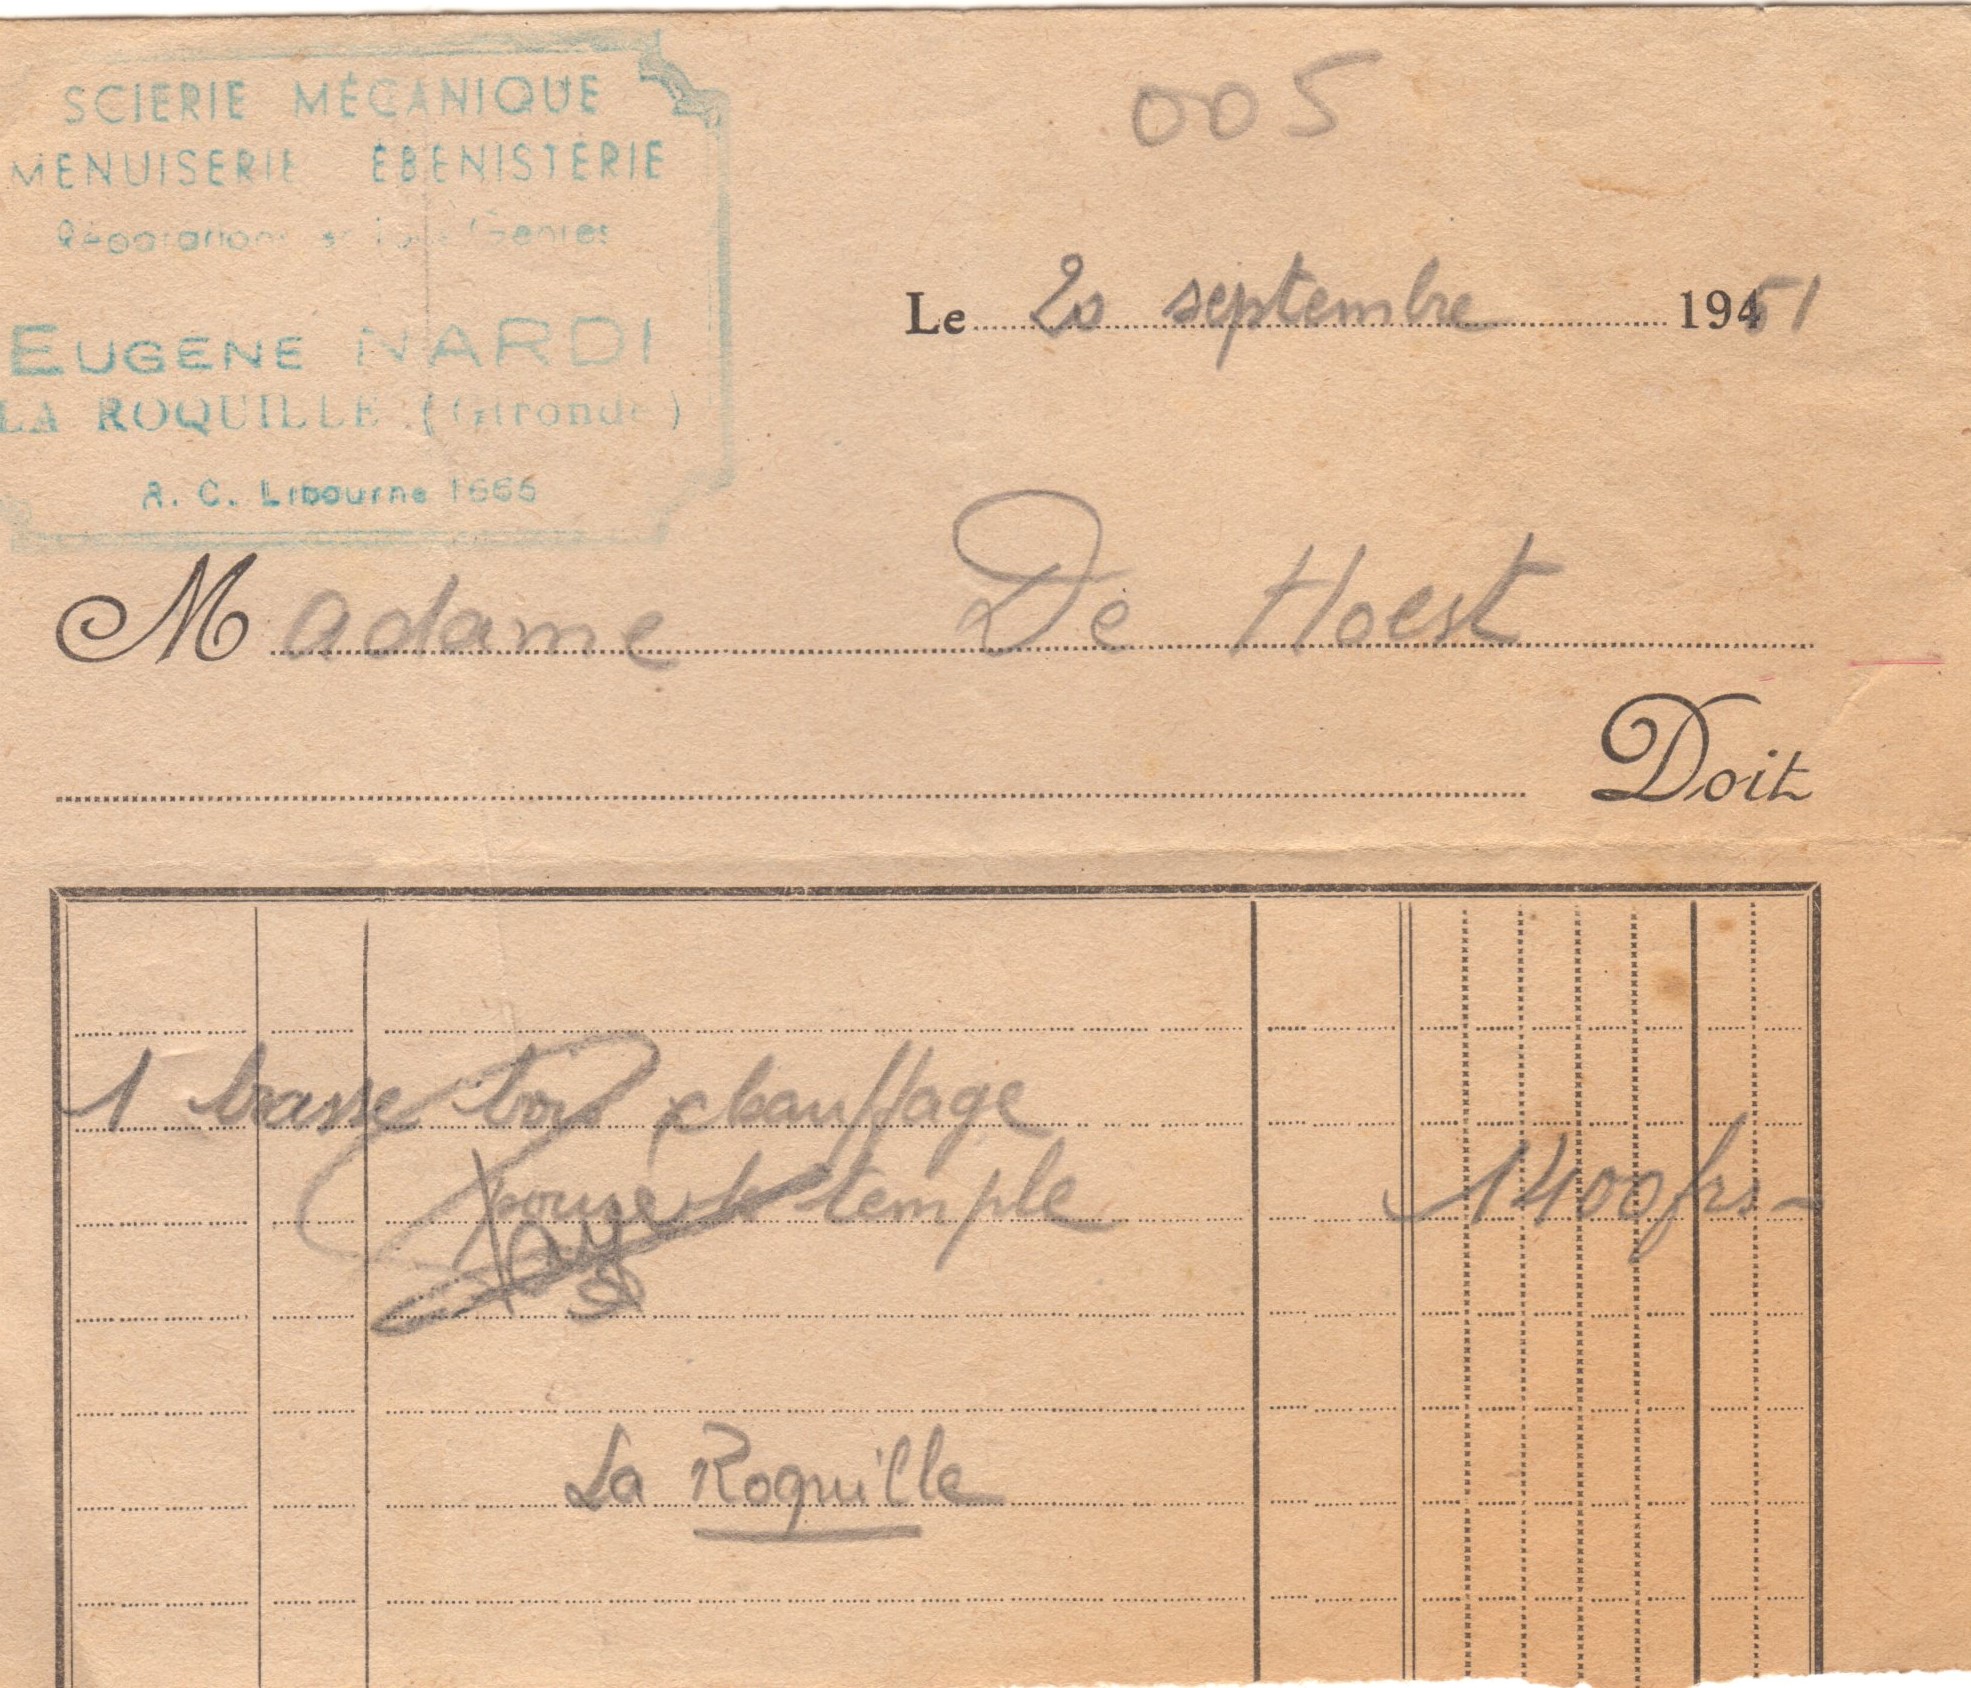 SCIERIE MÉCANIQUE
MENUISERIE ÉBÉNISTERIE
Réparations Genres
EUGÈNE NARDI
LA ROQUILLE (Gironde)
R. C. Libourne 1666
005
Le 20 septembre 19451
Madame De Hoest
Doit
1 brasse bois chauffage
pour le temple 1400 frs
La Roquille